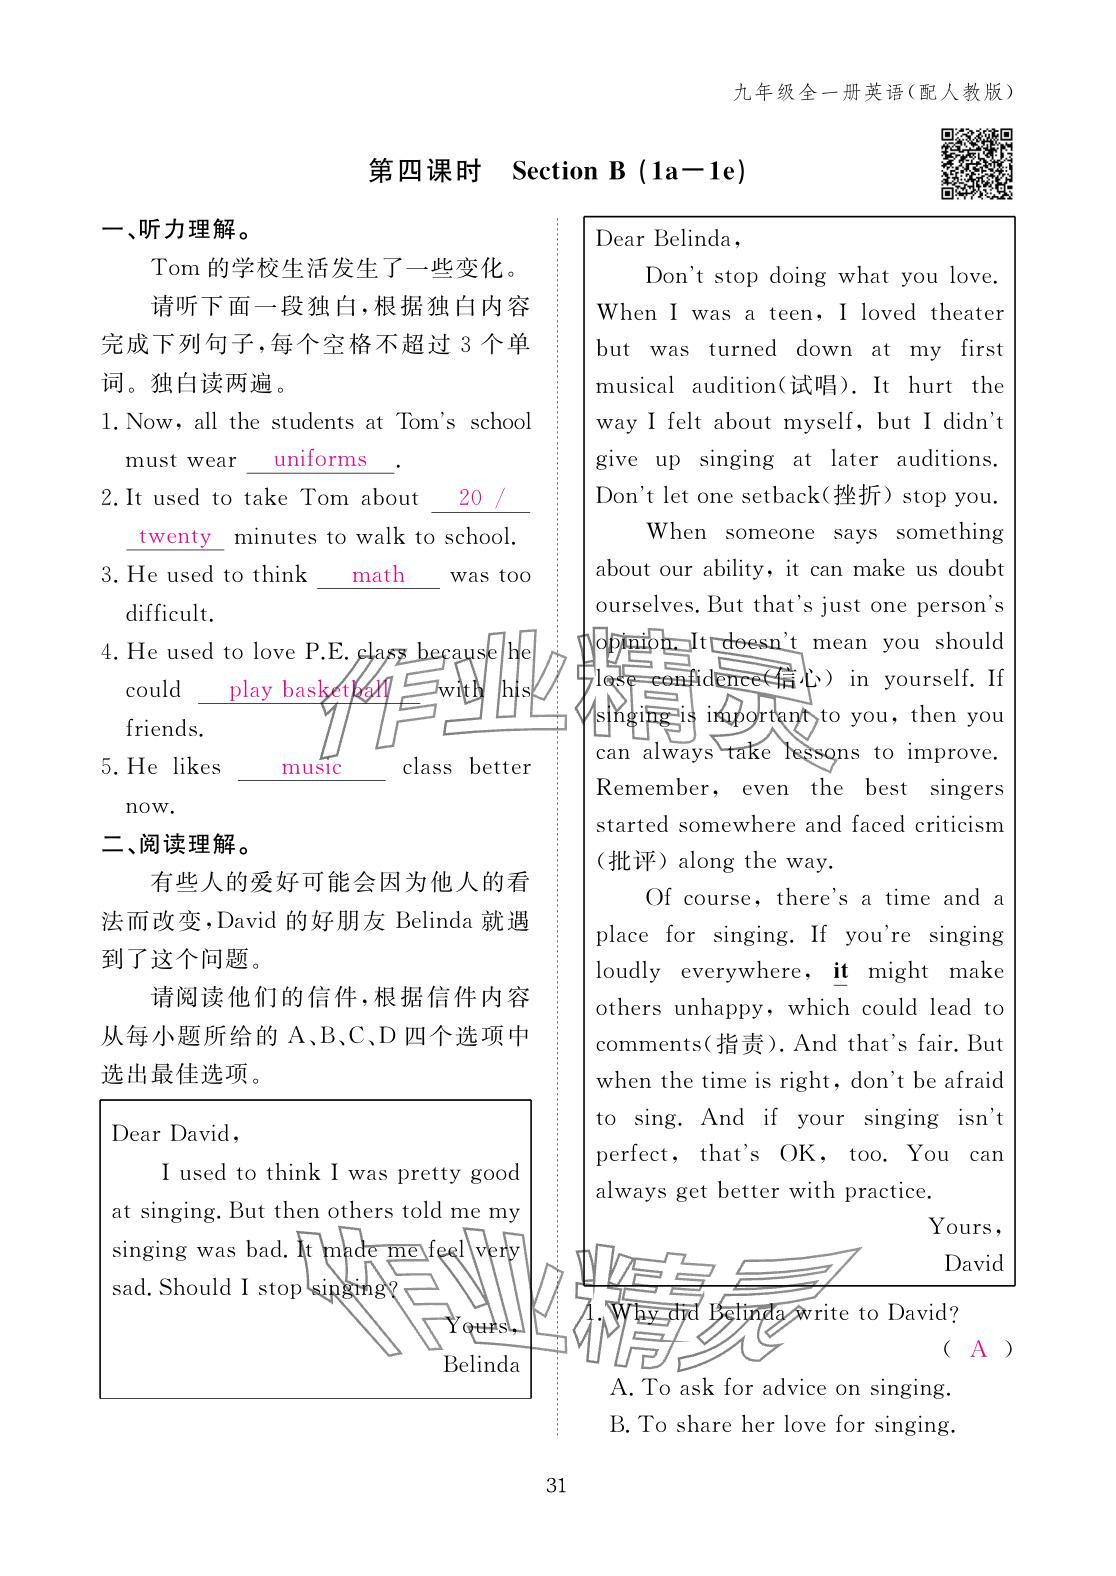 九年级全一册英语(配人教版)
第四课时 Section B (1a—1e)
一、听力理解。
Tom 的学校生活发生了一些变化。
请听下面一段独白,根据独白内容
完成下列句子,每个空格不超过 3 个单
词。独白读两遍。
1. Now, all the students at Tom's school
must wear uniforms.
2. It used to take Tom about 20 /
twenty minutes to walk to school.
3. He used to think math was too
difficult.
4. He used to love P.E. class because he
could play basketball with his
friends.
5. He likes music class better
now.
二、阅读理解。
有些人的爱好可能会因为他人的看
法而改变,David 的好朋友 Belinda 就遇
到了这个问题。
请阅读他们的信件,根据信件内容
从每小题所给的 A、B、C、D 四个选项中
选出最佳选项。
Dear David,
I used to think I was pretty good
at singing. But then others told me my
singing was bad. It made me feel very
sad. Should I stop singing?
Yours,
Belinda
Dear Belinda,
Don't stop doing what you love.
When I was a teen, I loved theater
but was turned down at my first
musical audition(试唱). It hurt the
way I felt about myself, but I didn't
give up singing at later auditions.
Don't let one setback(挫折) stop you.
When someone says something
about our ability, it can make us doubt
ourselves. But that's just one person's
opinion. It doesn't mean you should
lose confidence(信心) in yourself. If
singing is important to you, then you
can always take lessons to improve.
Remember, even the best singers
started somewhere and faced criticism
(批评) along the way.
Of course, there's a time and a
place for singing. If you're singing
loudly everywhere, it might make
others unhappy, which could lead to
comments(指责). And that's fair. But
when the time is right, don't be afraid
to sing. And if your singing isn't
perfect, that's OK, too. You can
always get better with practice.
Yours,
David
1. Why did Belinda write to David?
( A )
A. To ask for advice on singing.
B. To share her love for singing.
31
作业精灵
作业精灵